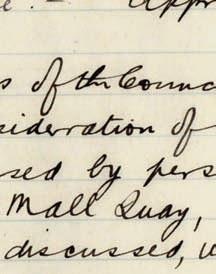 e. - Appr
s of the Counc
sideration of
sed by pers
Mall Quay,
discussed, w